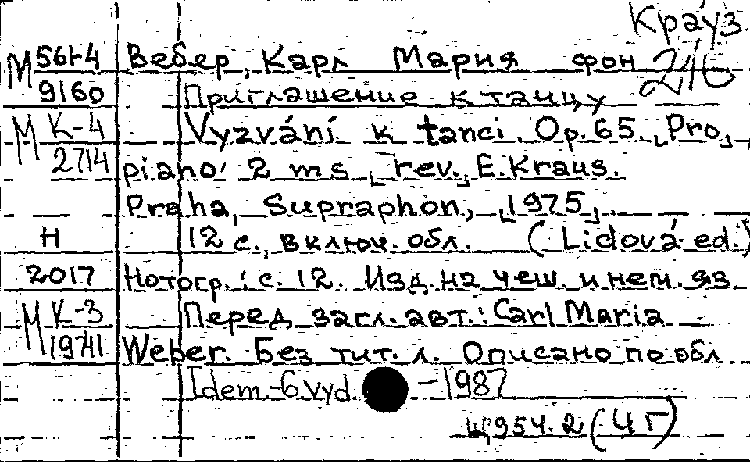 Крауз
246
М 561-4 Вебер, Карл Мария фон
9160 Приглашение к танцу
М К-4 Vyzvání k tanci. Op. 65. [Pro]
2714 piano 2 ms [rev.] E. Kraus.
Praha, Supraphon, [1975].
Н 12 с., включ. обл. (Lidová ed.)
2017 Нотогр.: с. 12. Изд. на чеш. и нем. яз.
М К-3 Перед загл. авт.: Carl Maria
19741 Weber. Без тит. л. Описано по обл
Idem.-6.vyd. -1987
Щ954.2 (4Г)